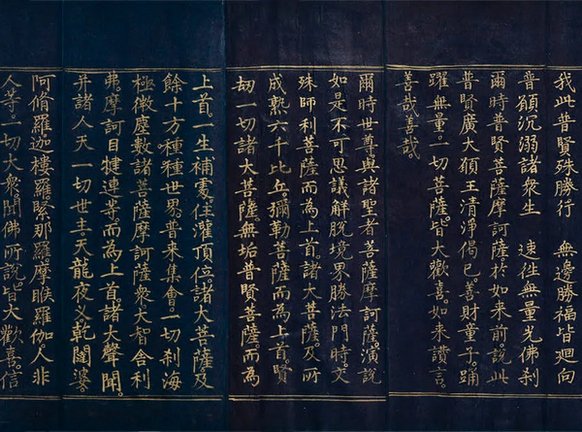 我此普賢殊勝行　無邊勝福皆廻向
普願沉溺諸衆生　速往無量光佛刹
爾時普賢菩薩摩訶薩於如來前說此
普賢廣大願王清淨偈已。善財童子。踊
躍無量。一切菩薩。皆大歡喜。如來讚言。
善哉善哉。
爾時世尊與諸聖者菩薩摩訶薩。演說
如是不可思議解脫境界勝法門時。文
殊師利菩薩而爲上首。諸大菩薩。及所
成熟六千比丘。彌勒菩薩而爲上首。賢
劫一切諸大菩薩。無垢普賢菩薩而爲
上首。一生補處。住灌頂位。諸大菩薩。及
餘十方。種種世界。普來集會。一切刹海
極微塵數諸菩薩摩訶薩衆。大智舍利
弗。摩訶目犍連等。而爲上首。諸大聲聞。
并諸人天一切世主。天龍夜叉乾闥婆
阿脩羅。迦樓羅。緊那羅。摩睺羅伽。人非
人等。一切大衆。聞佛所說。皆大歡喜。信